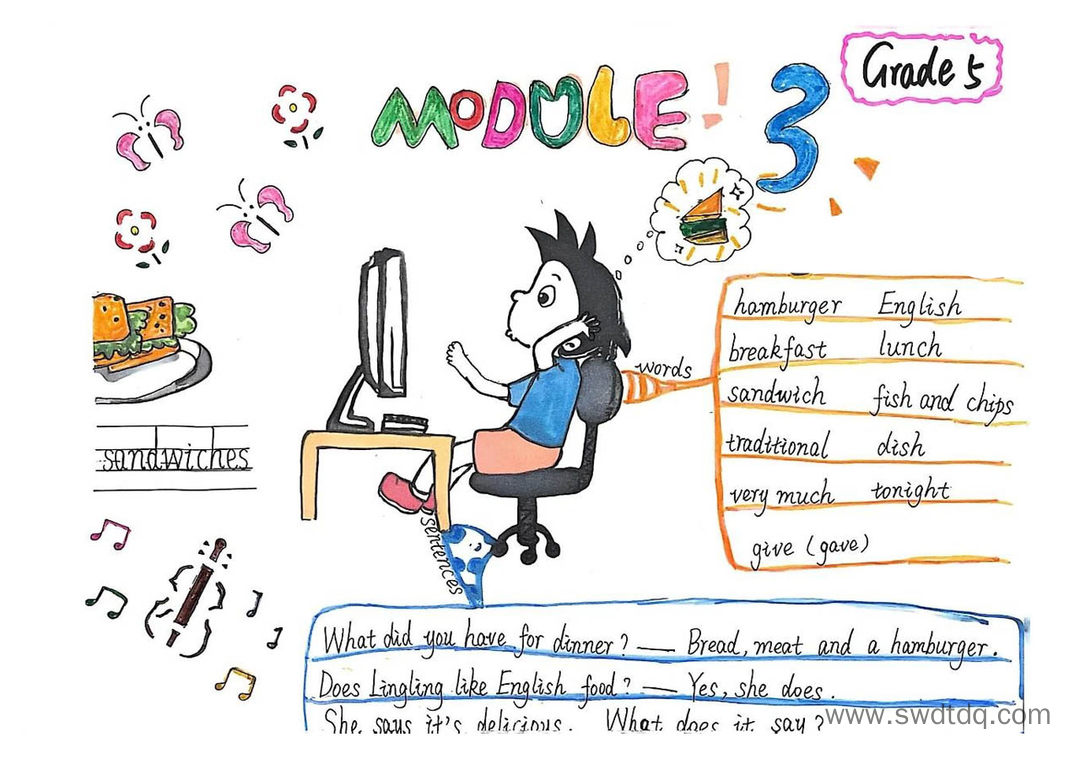 Grade 5
MODULE! 3
words
hamburger English
breakfast lunch
sandwich fish and chips
traditional dish
very much tonight
give (gave)
sandwiches
sentences
What did you have for dinner? — Bread, meat and a hamburger.
Does Lingling like English food? — Yes, she does.
She says it's delicious. What does it say?
www.swdtdq.com